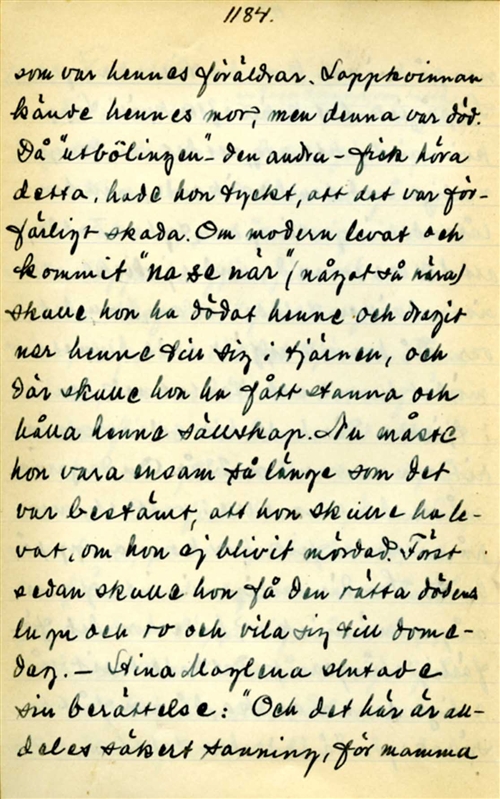 1184.
som var hennes föräldrar. Lappkvinnan
kände hennes mor, men denna var död.
Då "utbölingen" - den andra - fick höra
detta, hade hon tyckt, att det var för-
färligt skada. Om modern levat och
kommit "na se när" (något så nära)
skulle hon ha dödat henne och dragit
ner henne till sig i tjärnen, och
där skulle hon ha fått stanna och
hålla henne sällskap. Nu måste
hon vara ensam så länge som det
var bestämt, att hon skulle ha le-
vat, om hon ej blivit mördad. Först
sedan skulle hon få den rätta dödens
lugn och ro och vila sig till dome-
dag. — Stina Maglena slutade
sin berättelse: "Och det här är all-
deles säkert sanning, för mamma